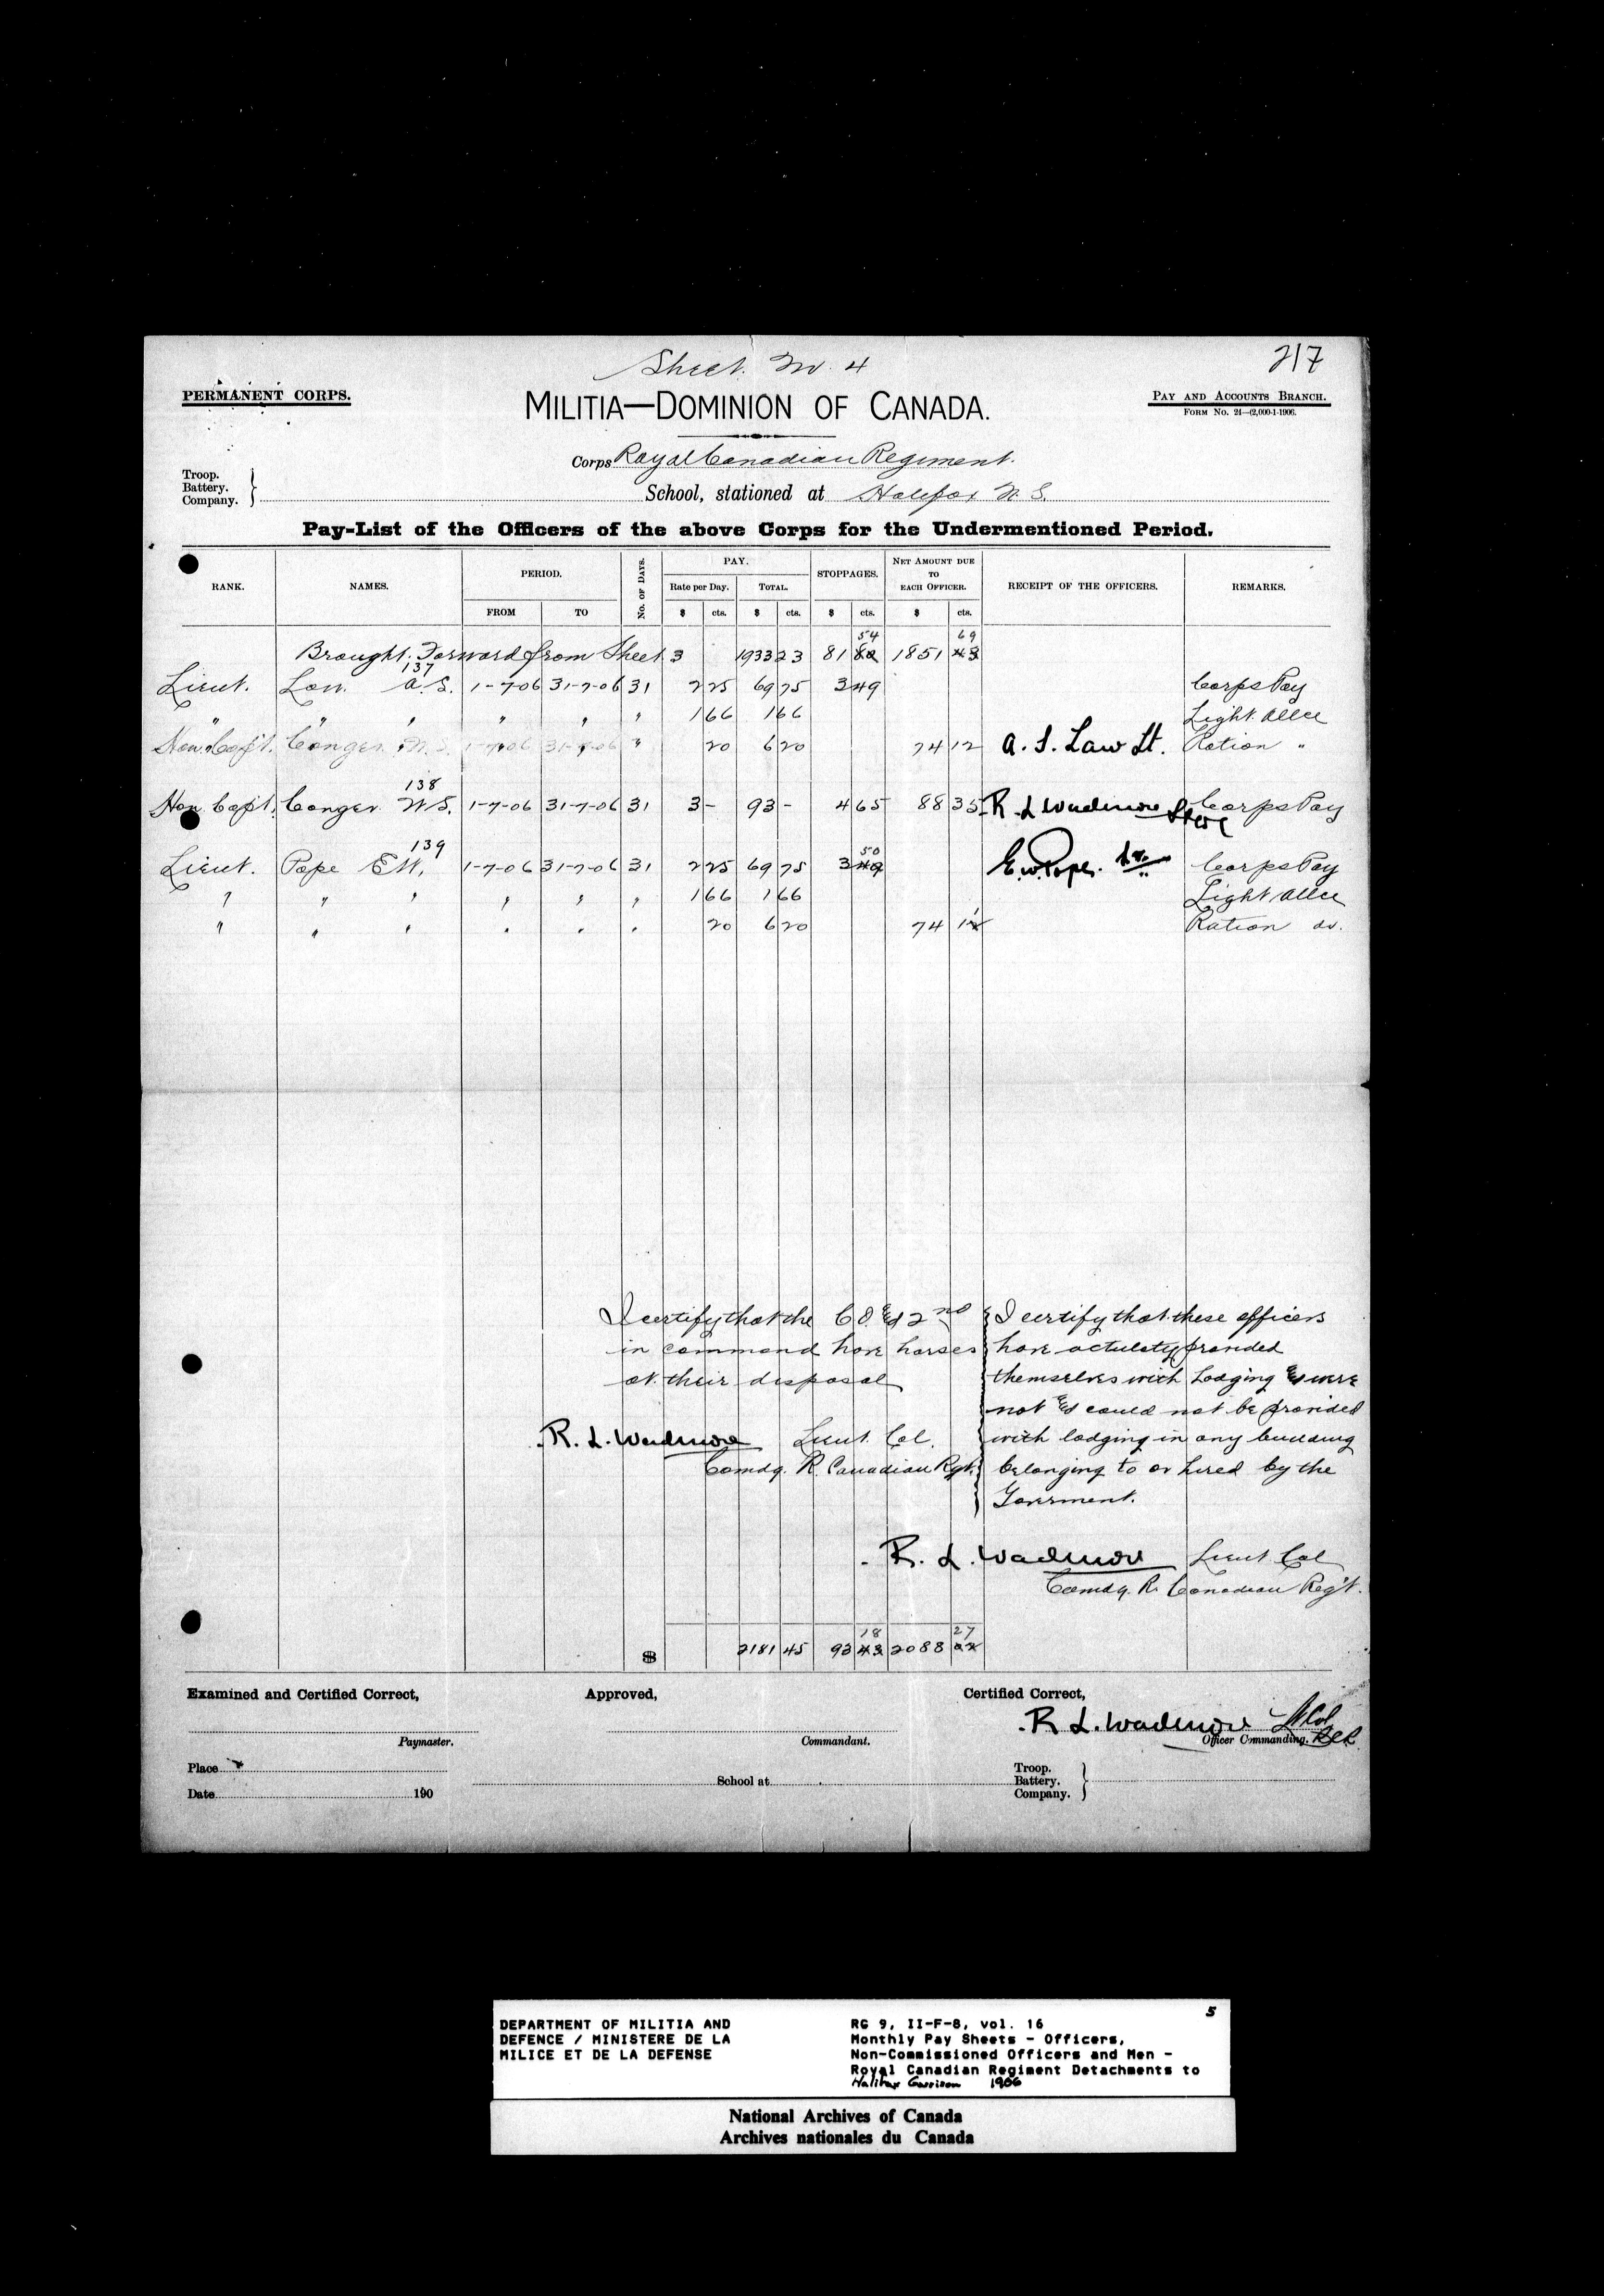 Sheet. No. 4
217
PERMANENT CORPS.
MILITIA—DOMINION OF CANADA.
PAY AND ACCOUNTS BRANCH.
FORM No. 24—(2,000-1-1906.
Corps Royal Canadian Regiment.
Troop.
Battery.
Company.
School, stationed at Halifax N. S.
Pay-List of the Officers of the above Corps for the Undermentioned Period.
RANK. NAMES. PERIOD. FROM TO No. OF DAYS. PAY. Rate per Day. $ cts. TOTAL. $ cts. STOPPAGES. $ cts. NET AMOUNT DUE TO EACH OFFICER. $ cts. RECEIPT OF THE OFFICERS. REMARKS.
54 69
Brought Forward from Sheet 3 1933 23 81 82 1851 43
137
Lieut. Law A. S. 1-7-06 31-7-06 31 2 25 69 75 3 49 Corps Pay
" " " " " " 1 66 1 66 Light Allce
Hon. Capt. Conger W. S. 1-7-06 31-7-06 " 20 6 20 74 12 A. S. Law Lt. Ration "
138
Hon Capt. Conger W. S. 1-7-06 31-7-06 31 3 - 93 - 4 65 88 35 R. L. Wadmore Corps Pay
139 50
Lieut. Pope E W. 1-7-06 31-7-06 31 2 25 69 75 3 49 E. W. Pope. Corps Pay
" " " " " " 1 66 1 66 Light Allce
" " " " " " 20 6 20 74 12 Ration do.
I certify that the C O. & 2nd
in command have horses
at their disposal
R. L. Wadmore Lieut. Col.
Comdg. R. Canadian Rgt.
I certify that these officers
have actulaty provided
themselves with Lodging & were
not & could not be provided
with lodging in any building
belonging to or hired by the
Goverment.
R. L. Wadmore Lieut Col
Comdg. R. Canadian Reg't.
18 27
$ 2181 45 93 43 2088 02
Examined and Certified Correct, Approved, Certified Correct,
R. L. Wadmore Lt Col
Paymaster. Commandant. Officer Commanding. RCR
Place
School at
Troop.
Battery.
Company.
Date 190
5
DEPARTMENT OF MILITIA AND
DEFENCE / MINISTERE DE LA
MILICE ET DE LA DEFENSE
RG 9, II-F-8, vol. 16
Monthly Pay Sheets - Officers,
Non-Commissioned Officers and Men -
Royal Canadian Regiment Detachments to
Halifax Garrison 1906
National Archives of Canada
Archives nationales du Canada